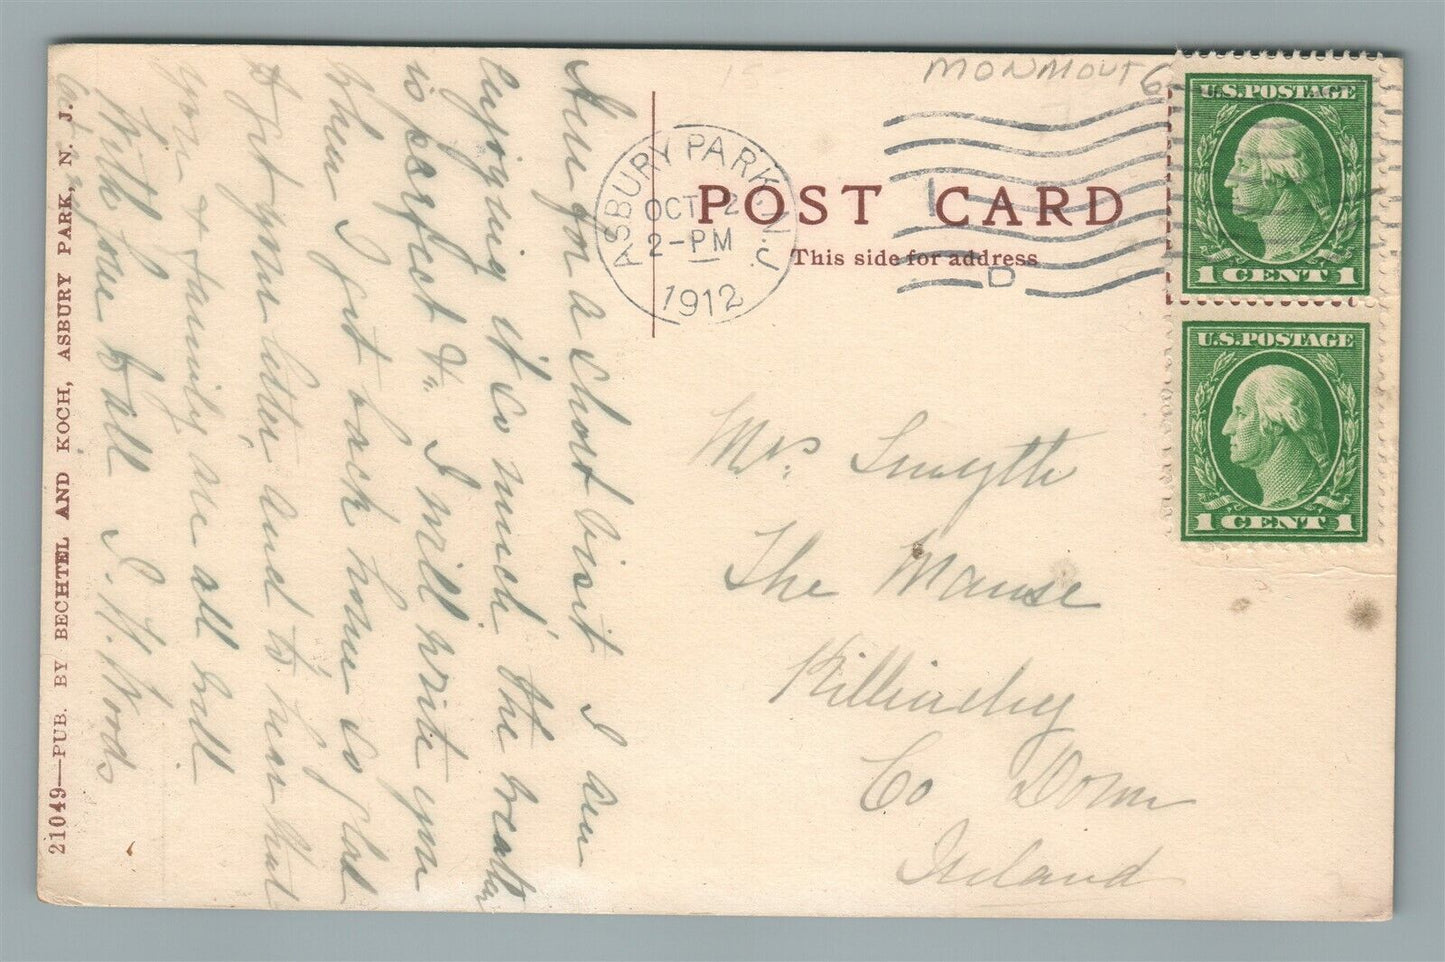 MONMOUT 6
15
ASBURY PARK, N.J.
OCT 2
2-PM
1912
POST CARD
This side for address
D
U.S. POSTAGE
1 CENT 1
U.S. POSTAGE
1 CENT 1
Mrs. Smyth
The Manse
Co Down
Ireland
Here for a short visit I am
enjoying it so much the weather
is perfect. I will write you
when I get back home so glad
to get your letter and to hear that
you & family are all well
With love to all
21049—PUB. BY BECHTEL AND KOCH, ASBURY PARK, N. J.